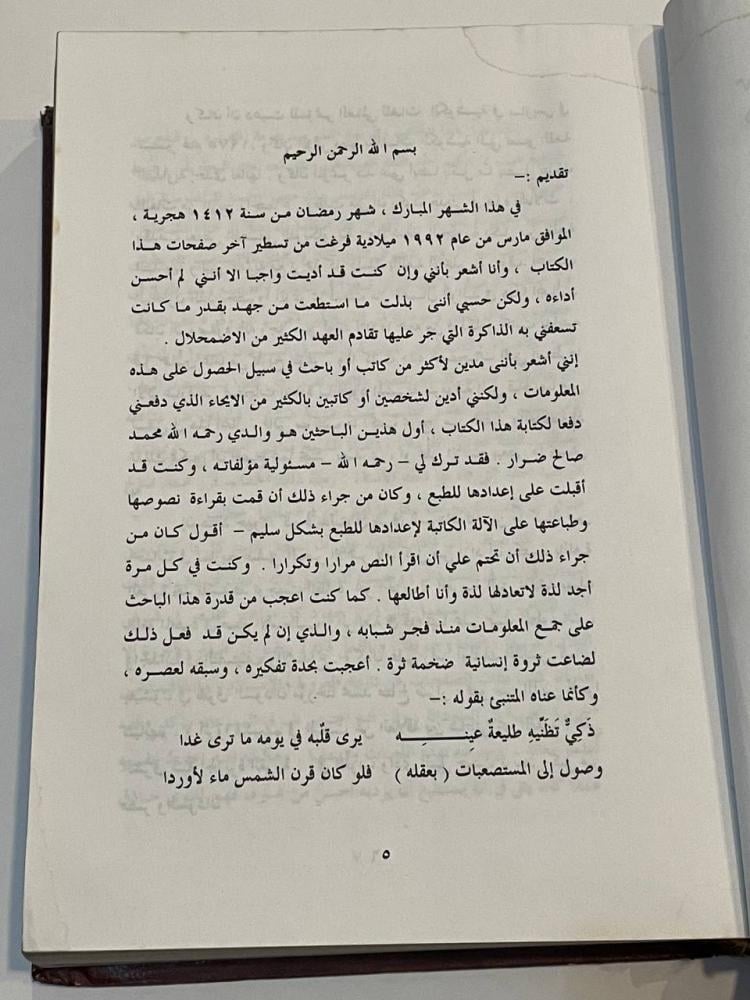 بسم الله الرحمن الرحيم
تقديم :ـ
في هذا الشهر المبارك ، شهر رمضان من سنة ١٤١٢ هجرية ،
الموافق مارس من عام ١٩٩٢ ميلادية فرغت من تسطير آخر صفحات هذا
الكتاب ، وأنا أشعر بأنني وإن كنت قد أديت واجبا الا أنني لم أحسن
أداءه ، ولكن حسبي أننى بذلت ما استطعت من جهد بقدر ما كانت
تسعفني به الذاكرة التي جر عليها تقادم العهد الكثير من الاضمحلال .
إنني أشعر بأننى مدين لأكثر من كاتب أو باحث في سبيل الحصول على هذه
المعلومات ، ولكنني أدين لشخصين أو كاتبين بالكثير من الايحاء الذي دفعني
دفعا لكتابة هذا الكتاب ، أول هذين الباحثين هو والدي رحمه الله محمد
صالح ضرار . فقد ترك لي – رحمه الله – مسئولية مؤلفاته ، وكنت قد
أقبلت على إعدادها للطبع ، وكان من جراء ذلك أن قمت بقراءة نصوصها
وطباعتها على الآلة الكاتبة لإعدادها للطبع بشكل سليم – أقول كان من
جراء ذلك أن تحتم علي أن اقرأ النص مرارا وتكرارا . وكنت في كل مرة
أجد لذة لاتعادلها لذة وأنا أطالعها . كما كنت اعجب من قدرة هذا الباحث
على جمع المعلومات منذ فجر شبابه ، والذي إن لم يكن قد فعل ذلك
لضاعت ثروة إنسانية ضخمة ثرة . أعجبت بحدة تفكيره ، وسبقه لعصره ،
وكأنما عناه المتنبئ بقوله :ـ
ذَكِيٌّ تَظَنّيهِ طليعةُ عينِـــــــهِ يرى قلّبه في يومه ما ترى غدا
وصول إلى المستصعبات ( بعقله ) فلو كان قرن الشمس ماء لأوردا
٥